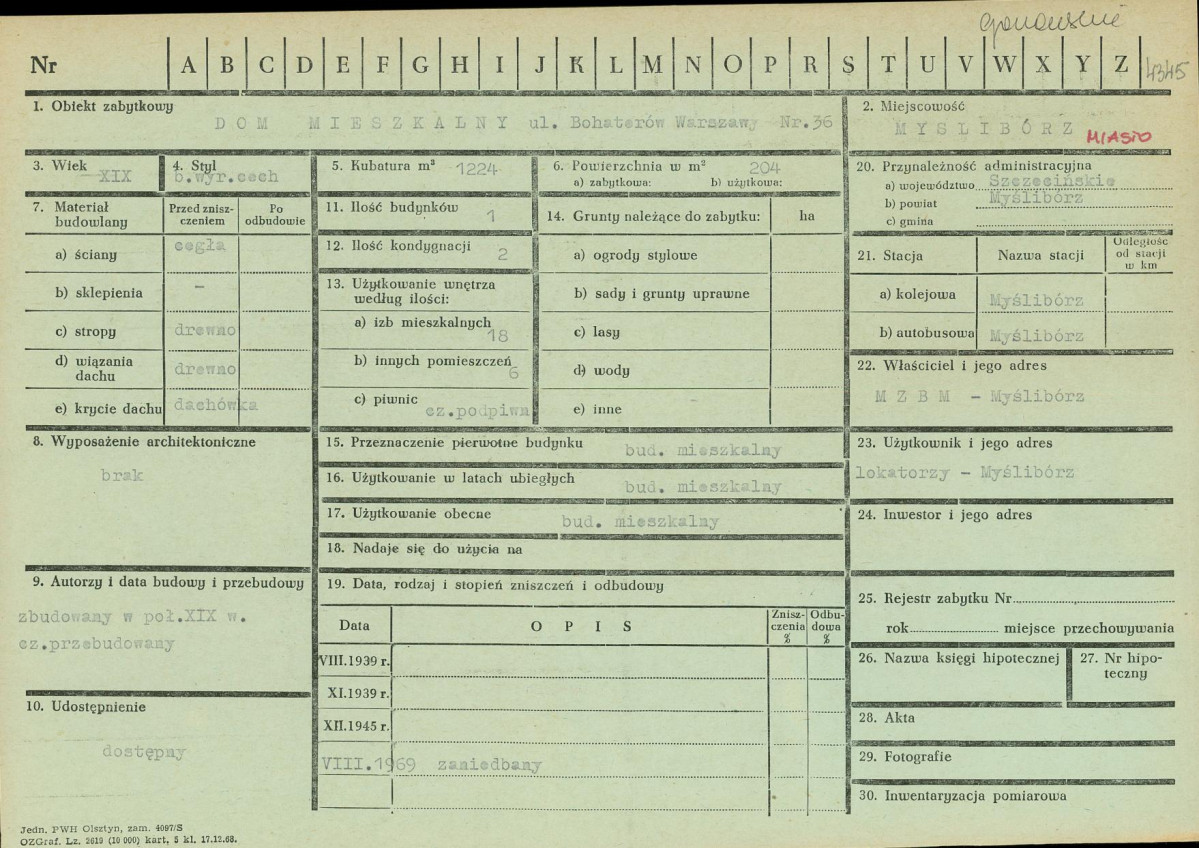 Nr A B C D E F G H I J K L M N O P R S T U V W X Y Z 4345
1. Obiekt zabytkowy
DOM MIESZKALNY ul. Bohaterów Warszawy Nr.36
2. Miejscowość
MYŚLIBÓRZ MIASTO
3. Wiek
XIX
4. Styl
b.wyr.cech
5. Kubatura m³ 1224
6. Powierzchnia w m² 204
a) zabytkowa: b) użytkowa:
20. Przynależność administracyjna
a) województwo Szczecińskie
b) powiat Myślibórz
c) gmina
7. Materiał budowlany
Przed znisz-
czeniem
Po
odbudowie
a) ściany cegła
b) sklepienia -
c) stropy drewno
d) wiązania
dachu drewno
e) krycie dachu dachówka
11. Ilość budynków 1
12. Ilość kondygnacji 2
13. Użytkowanie wnętrza
według ilości:
a) izb mieszkalnych 18
b) innych pomieszczeń 6
c) piwnic cz.podpiwn
14. Grunty należące do zabytku: ha
a) ogrody stylowe
b) sady i grunty uprawne
c) lasy
d) wody
e) inne
21. Stacja Nazwa stacji
Odległość
od stacji
w km
a) kolejowa Myślibórz
b) autobusowa Myślibórz
22. Właściciel i jego adres
M Z B M - Myślibórz
8. Wyposażenie architektoniczne
brak
15. Przeznaczenie pierwotne budynku bud. mieszkalny
16. Użytkowanie w latach ubiegłych bud. mieszkalny
17. Użytkowanie obecne bud. mieszkalny
18. Nadaje się do użycia na
23. Użytkownik i jego adres
lokatorzy - Myślibórz
24. Inwestor i jego adres
9. Autorzy i data budowy i przebudowy
zbudowany w poł.XIX w.
cz.przebudowany
19. Data, rodzaj i stopień zniszczeń i odbudowy
Data O P I S
Znisz-
czenia
%
Odbu-
dowa
%
VIII.1939 r.
XI.1939 r.
XII.1945 r.
VIII.1969 zaniedbany
25. Rejestr zabytku Nr
rok miejsce przechowywania
26. Nazwa księgi hipotecznej
27. Nr hipo-
teczny
10. Udostępnienie
dostępny
28. Akta
29. Fotografie
30. Inwentaryzacja pomiarowa
Jedn. PWH Olsztyn, zam. 4097/S
OZGraf. Lz. 2619 (10 000) kart, 5 kl. 17.12.68.